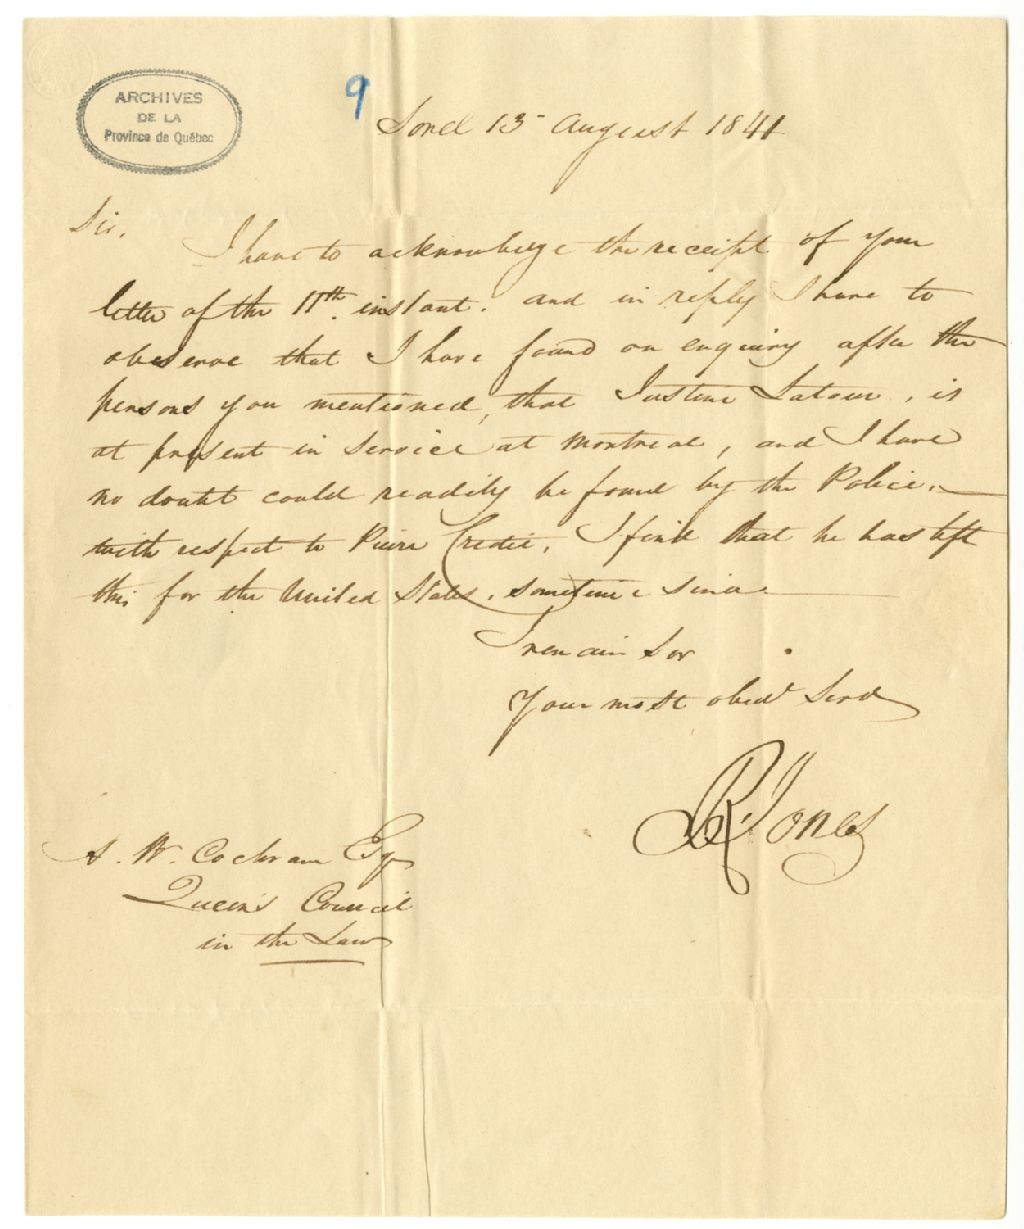 ARCHIVES
DE LA
Province de Québec
9
Sorel 13 August 1841
Sir.
I have to acknowledge the receipt of your
letter of the 11th. instant. and in reply I have to
observe that I have found on enquiry after the
persons you mentioned, that Justine Latour, is
at present in service at Montreal, and I have
no doubt could readily be found by the Police.
with respect to Pierre I find that he has left
this for the United States. sometime since
I remain Sir
Your most obedt Servt
R. Jones
A. W. Cochran Esqr
Queen's Council
in the Law